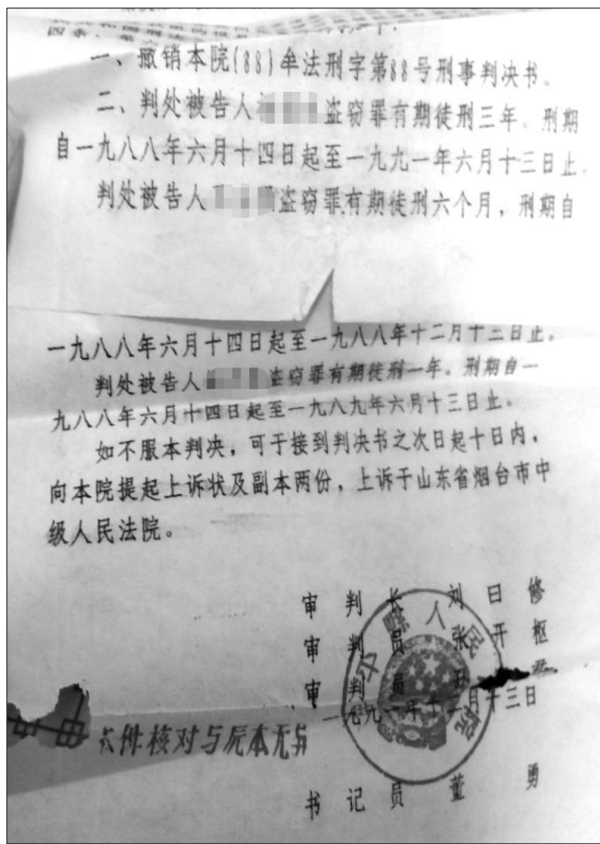 一、撤销本院(88)牟法刑字第88号刑事判决书、
二、判处被告人 盗窃罪有期徒刑三年、刑期
自一九八八年六月十四日起至一九九一年六月十三日止。
判处被告人 盗窃罪有期徒刑六个月，刑期自
一九八八年六月十四日起至一九八八年十二月十三日止。
判处被告人 盗窃罪有期徒刑一年。刑期自一
九八八年六月十四日起至一九八九年六月十三日止。
如不服本判决，可于接到判决书之次日起十日内，
向本院提起上诉状及副本两份，上诉于山东省烟台市中
级人民法院。
审 判 长 刘 曰 修
审 判 员 张 开 枢
审 判 员
一九九一年十一月十三日
本件核对与原本无异
书 记 员 董 勇